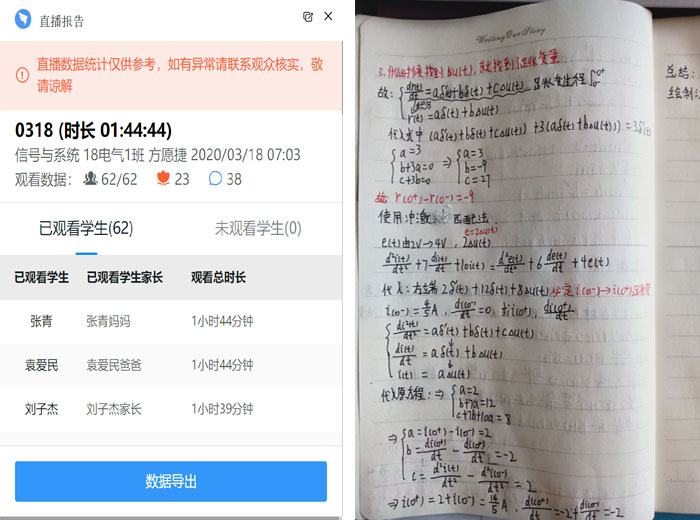 直播报告
直播数据统计仅供参考，如有异常请联系观众核实，敬
请谅解
0318 (时长 01:44:44)
信号与系统 18电气1班 方愿捷 2020/03/18 07:03
观看数据： 62/62 23 38
已观看学生(62) 未观看学生(0)
已观看学生 已观看学生家长 观看总时长
张青 张青妈妈 1小时44分钟
袁爱民 袁爱民爸爸 1小时44分钟
刘子杰 刘子杰家长 1小时39分钟
数据导出
Writing Our Story
3. 什么时候找到Δu(t),就找到了正跳变量
故: dr(t)/dt = aδ'(t)+bδ(t)+cΔu(t)
r(t) = aδ(t)+bΔu(t)
代入式中 (aδ'(t)+bδ(t)+cΔu(t))+3(aδ(t)+bΔu(t)) = 3δ'(t)
a=3 b+3a=0 c+3b=0 ⇒ a=3 b=-9 c=27
故 r(0+)-r(0-)=-9
使用冲激 匹配法
e=2Δu(t)
e(t)由2V→4V, 2Δu(t)
d²i(t)/dt² + 7 di(t)/dt + 10i(t) = d²e(t)/dt² + 6 de(t)/dt + 4e(t)
代入: 右端 2δ'(t)+12δ(t)+8Δu(t)
i(0-)=4/5 A, di(0-)/dt=0, 求i(0+), di(0+)/dt
di²(t)/dt² = aδ'(t)+bδ(t)+cΔu(t)
di(t)/dt = aδ(t)+bΔu(t)
i(t) = aΔu(t)
代入原方程: ⇒ a=2
b+7a=12
c+7b+10a=8
⇒ a=i(0+)-i(0-)=2
b=di(0+)/dt - di(0-)/dt=-2
c=d²i(0+)/dt² - d²i(0-)/dt² = 2
⇒ i(0+)=2+i(0-)=14/5 A, di(0+)/dt=-2+di(0-)/dt=-2
总结: